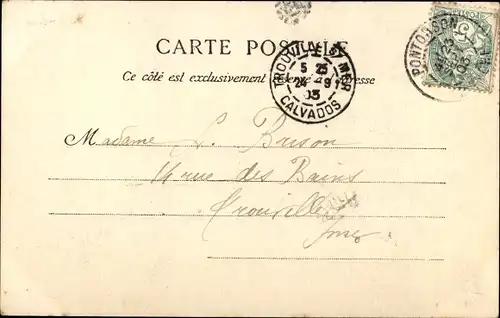 CARTE POSTALE
Ce côté est exclusivement réservé à l'adresse
TROUVILLE S/ MER
5 25
24 9
03
CALVADOS
PONTORSON
23
03
5
Madame L. Brison
rue des Bains
Trouville
s/mer